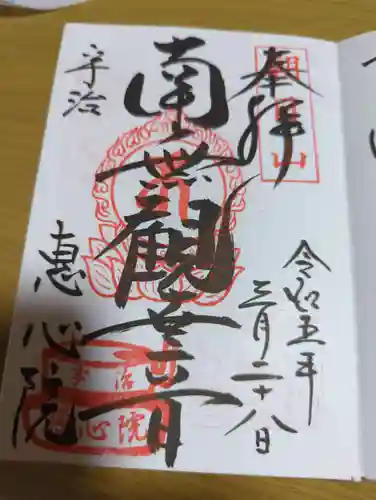 奉拝
朝日山
令和五年
三月二十八日
南無観世音
宇治
恵心院
宇治
恵心院